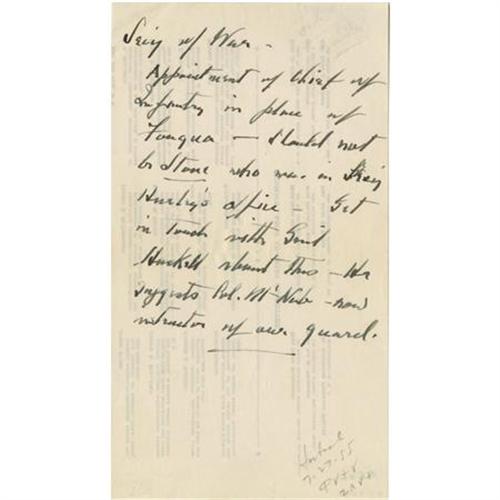 Secy of War -
Appointment of Chief of
Infantry in place of
Fouqua - Should not
be Stone who was in Secy
Hurley's office - Get
in touch with Genl
Haskell about this - He
suggests Col. McNabb - now
instructor of our guard.
7-27-55